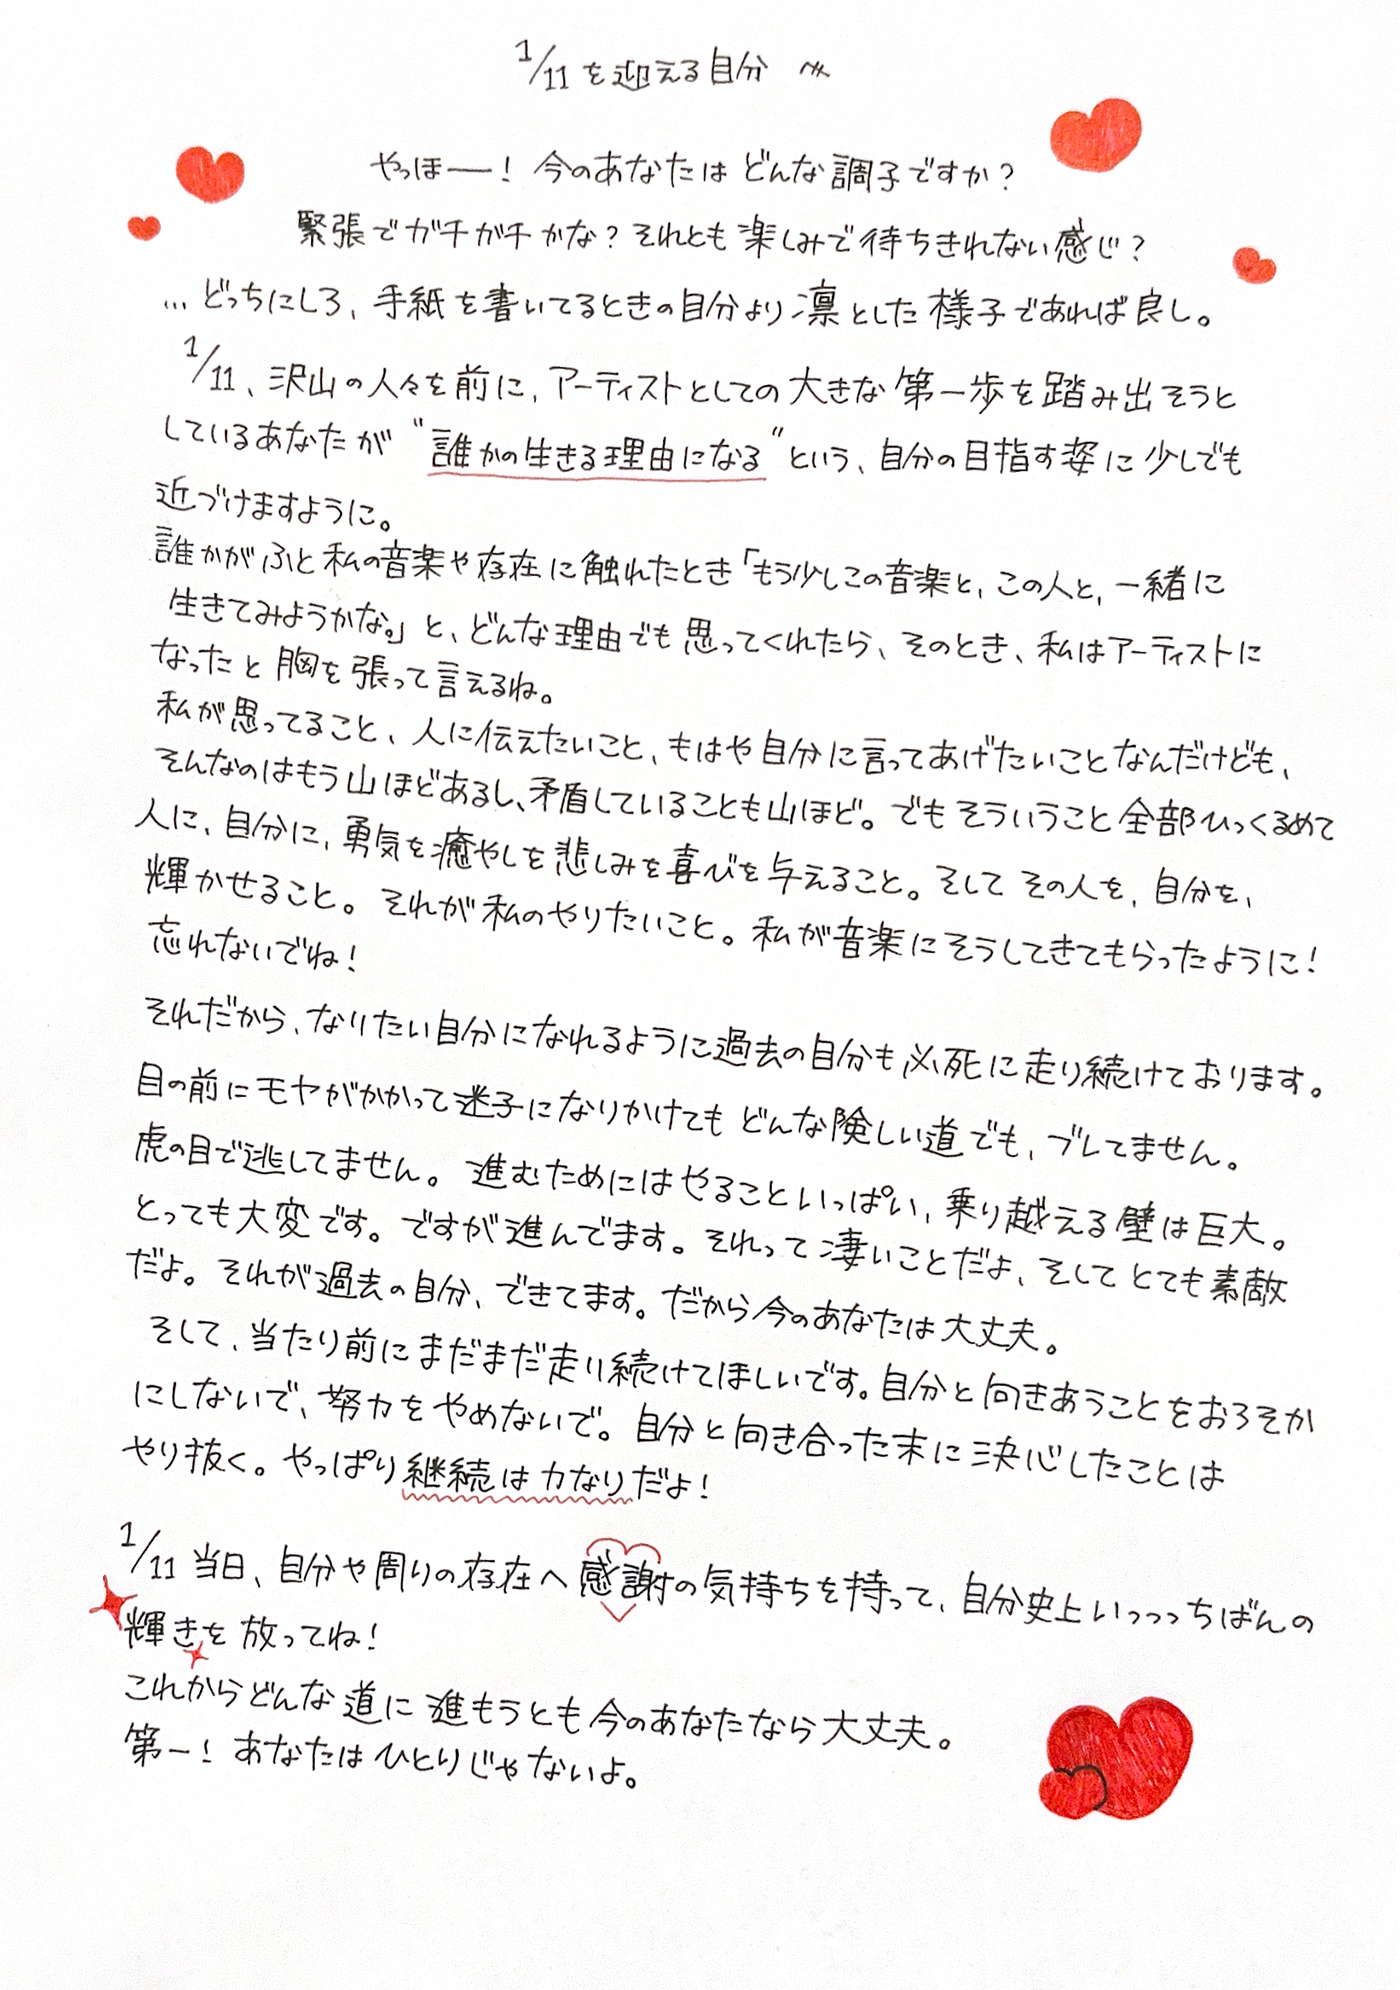 1/11を迎える自分 へ
やっほー！ 今のあなたは どんな調子ですか？
緊張でガチガチかな？それとも楽しみで待ちきれない感じ？
…どっちにしろ、手紙を書いてるときの自分より凛とした様子であれば良し。
1/11、沢山の人々を前に、アーティストとしての大きな第一歩を踏み出そうと
しているあなたが "誰かの生きる理由になる" という、自分の目指す姿に少しでも
近づけますように。
誰かがふと私の音楽や存在に触れたとき「もう少しこの音楽と、この人と、一緒に
生きてみようかな。」と、どんな理由でも思ってくれたら、そのとき、私はアーティストに
なったと胸を張って言えるね。
私が思ってること、人に伝えたいこと、もはや自分に言ってあげたいことなんだけども、
そんなのはもう山ほどあるし、矛盾していることも山ほど。でもそういうこと全部ひっくるめて
人に、自分に、勇気を癒やしを悲しみを喜びを与えること。そしてその人を、自分を、
輝かせること。それが私のやりたいこと。私が音楽にそうしてきてもらったように！
忘れないでね！
それだから、なりたい自分になれるように過去の自分も必死に走り続けております。
目の前にモヤがかかって迷子になりかけてもどんな険しい道でも、ブレてません。
虎の目で逃してません。進むためにはやることいっぱい、乗り越える壁は巨大。
とっても大変です。ですが進んでます。それって凄いことだよ、そしてとても素敵
だよ。それが過去の自分、できてます。だから今のあなたは大丈夫。
そして、当たり前にまだまだ走り続けてほしいです。自分と向きあうことをおろそか
にしないで、努力をやめないで。自分と向き合った末に決心したことは
やり抜く。やっぱり継続は力なりだよ！
1/11 当日、自分や周りの存在へ感謝の気持ちを持って、自分史上いっっっちばんの
輝きを放ってね！
これからどんな道に進もうとも今のあなたなら大丈夫。
第一！あなたはひとりじゃないよ。